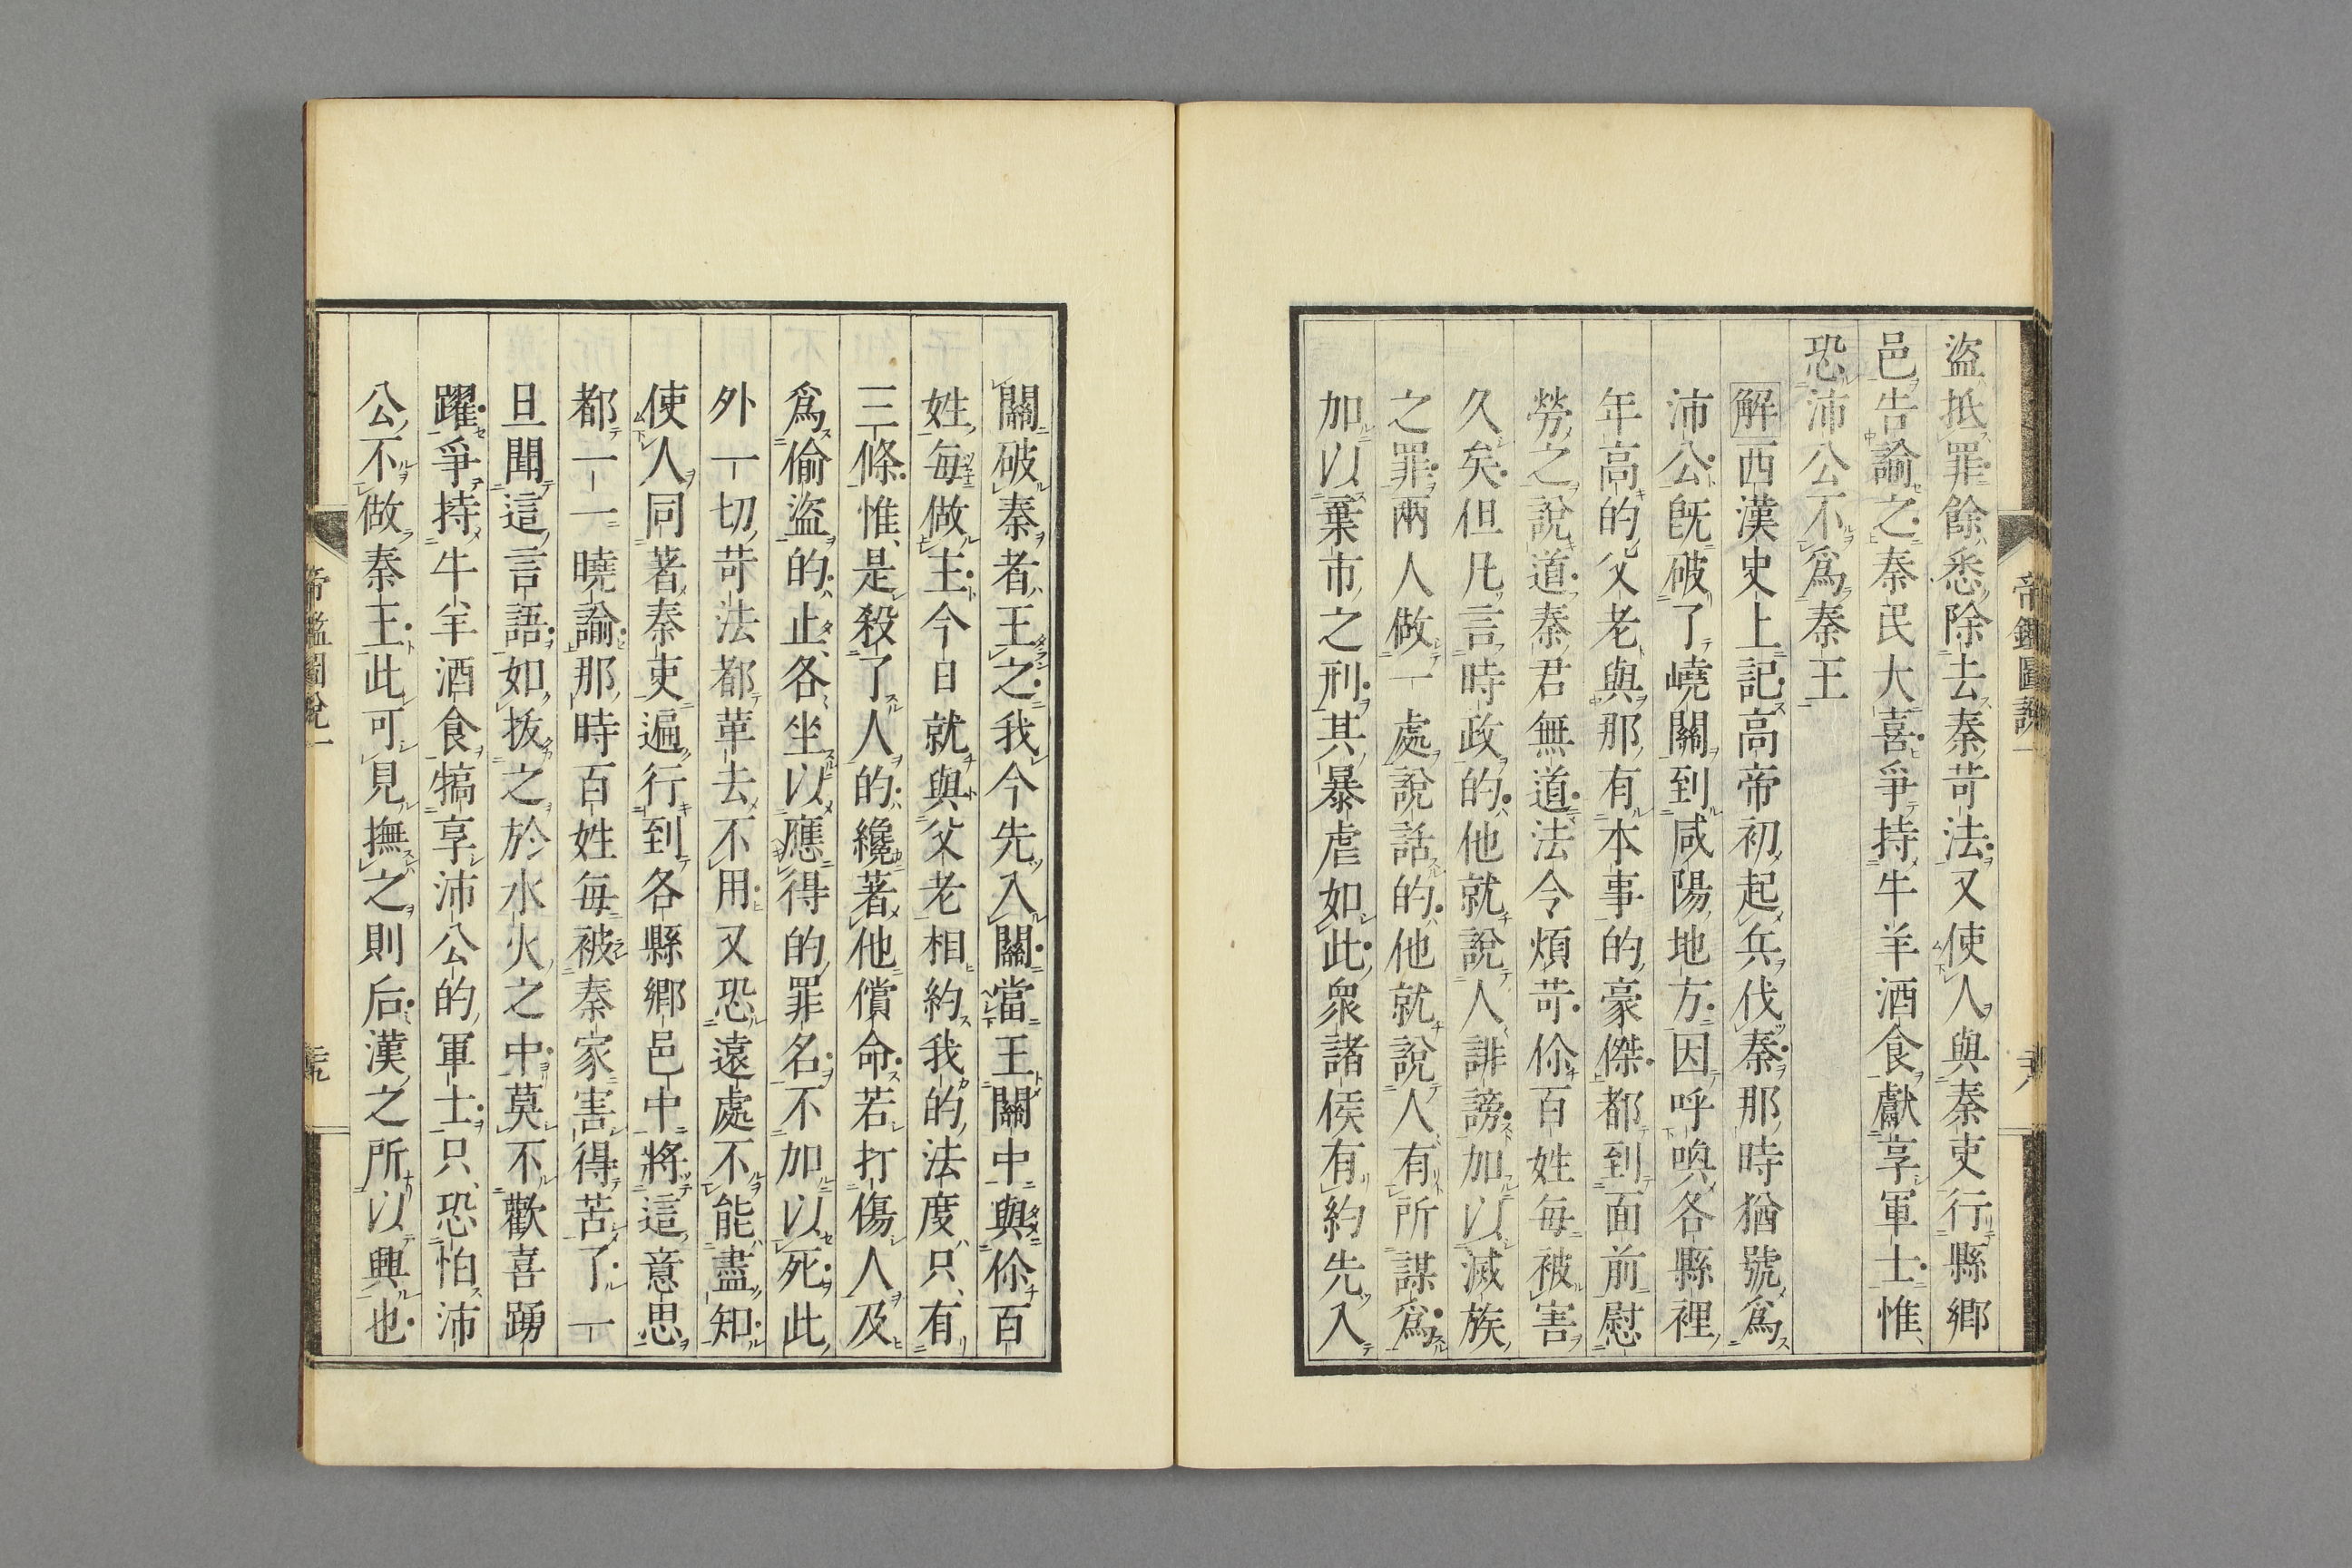 盜抵罪餘悉除去秦苛法又使人與秦吏行縣鄉
邑告諭之秦民大喜爭持牛羊酒食獻享軍士惟
恐沛公不爲秦王
解西漢史上記高帝初起兵伐秦那時猶號爲
沛公旣破了嶢關到咸陽地方因呼喚各縣裡
年高的父老與那有本事的豪傑都到面前慰
勞之說道秦君無道法令煩苛你百姓每被害
久矣但凡言時政的他就說人誹謗加以滅族
之罪兩人做一處說話的他就說人有所謀爲
加以棄市之刑其暴虐如此衆諸侯有約先入
關破秦者王之我今先入關當王關中與你百
姓每做主今日就與父老相約我的法度只有
三條惟是殺了人的纔著他償命若打傷人及
爲偷盜的止各坐以應得的罪名不加以死此
外一切苛法都革去不用又恐遠處不能盡知
使人同著秦吏遍行到各縣鄉邑中將這意思
都一一曉諭那時百姓每被秦家害得苦了一
旦聞這言語如拔之於水火之中莫不歡喜踴
躍爭持牛羊酒食犒享沛公的軍士只恐怕沛
公不做秦王此可見撫之則后漢之所以興也
帝鑑圖說一